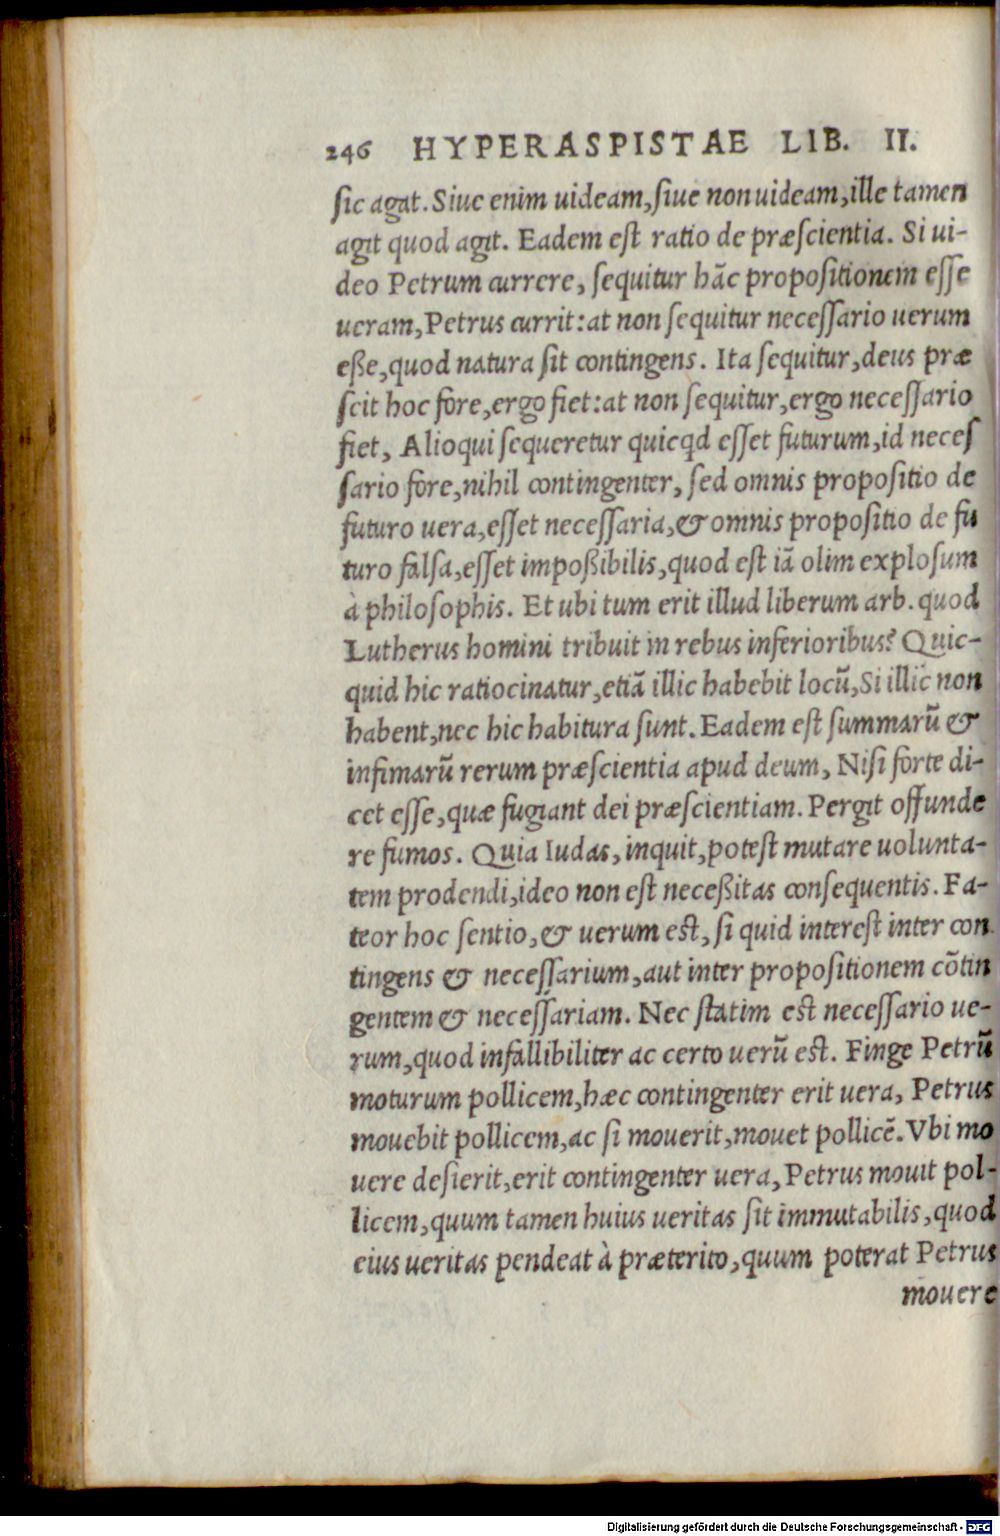 246 HYPERASPISTAE LIB. II.
ſic agat. Siue enim uideam, ſiue non uideam, ille tamen
agit quod agit. Eadem eſt ratio de præſcientia. Si ui-
deo Petrum currere, ſequitur hãc propoſitionem eſſe
ueram, Petrus currit: at non ſequitur neceſſario uerum
eße, quod natura ſit contingens. Ita ſequitur, deus præ
ſcit hoc fore, ergo fiet: at non ſequitur, ergo neceſſario
fiet, Alioqui ſequeretur quicqd eſſet futurum, id neceſ
ſario fore, nihil contingenter, ſed omnis propoſitio de
futuro uera, eſſet neceſſaria, & omnis propoſitio de fu
turo falſa, eſſet impoßibilis, quod eſt iã olim exploſum
à philoſophis. Et ubi tum erit illud liberum arb. quod
Lutherus homini tribuit in rebus inferioribus? Quic-
quid hic ratiocinatur, etiã illic habebit locũ, Si illic non
habent, nec hic habitura ſunt. Eadem eſt ſummarũ &
infimarũ rerum præſcientia apud deum, Niſi forte di-
cet eſſe, quæ fugiant dei præſcientiam. Pergit offunde
re fumos. Quia Iudas, inquit, poteſt mutare uolunta-
tem prodendi, ideo non eſt neceßitas conſequentis. Fa-
teor hoc ſentio, & uerum eſt, ſi quid intereſt inter con
tingens & neceſſarium, aut inter propoſitionem cõtin
gentem & neceſſariam. Nec ſtatim eſt neceſſario ue-
rum, quod infallibiliter ac certo uerũ eſt. Finge Petrũ
moturum pollicem, hæc contingenter erit uera, Petrus
mouebit pollicem, ac ſi mouerit, mouet pollicẽ. Vbi mo
uere deſierit, erit contingenter uera, Petrus mouit pol-
licem, quum tamen huius ueritas ſit immutabilis, quod
eius ueritas pendeat à præterito, quum poterat Petrus
mouere
Digitalisierung gefördert durch die Deutsche Forschungsgemeinschaft - DFG